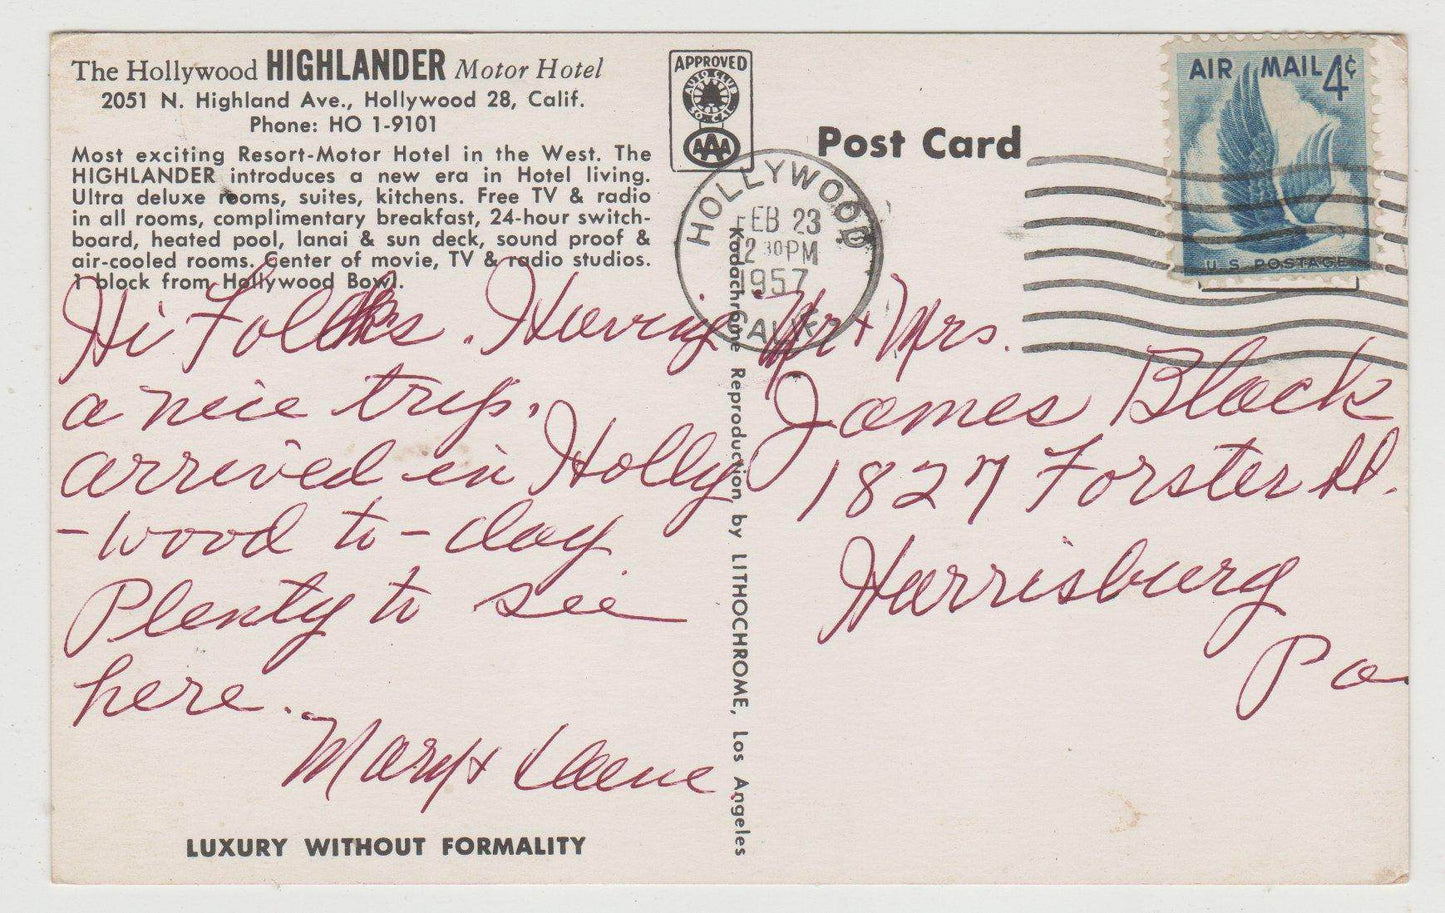 The Hollywood HIGHLANDER Motor Hotel
2051 N. Highland Ave., Hollywood 28, Calif.
Phone: HO 1-9101
Most exciting Resort-Motor Hotel in the West. The
HIGHLANDER introduces a new era in Hotel living.
Ultra deluxe rooms, suites, kitchens. Free TV & radio
in all rooms, complimentary breakfast, 24-hour switch-
board, heated pool, lanai & sun deck, sound proof &
air-cooled rooms. Center of movie, TV & radio studios.
1 block from Hollywood Bowl.
Hi Folks. Having
a nice trip.
arrived in Holly
-wood to-day
Plenty to see
here.
Mary &
LUXURY WITHOUT FORMALITY
APPROVED
AUTO CLUB
SO. CAL.
AAA
Post Card
HOLLYWOOD
FEB 23
12 30 PM
1957
CALIF
AIR MAIL 4¢
U S POSTAGE
Kodachrome Reproduction by LITHOCHROME, Los Angeles
Mr + Mrs.
James Black
1827 Forster St.
Harrisburg
Pa